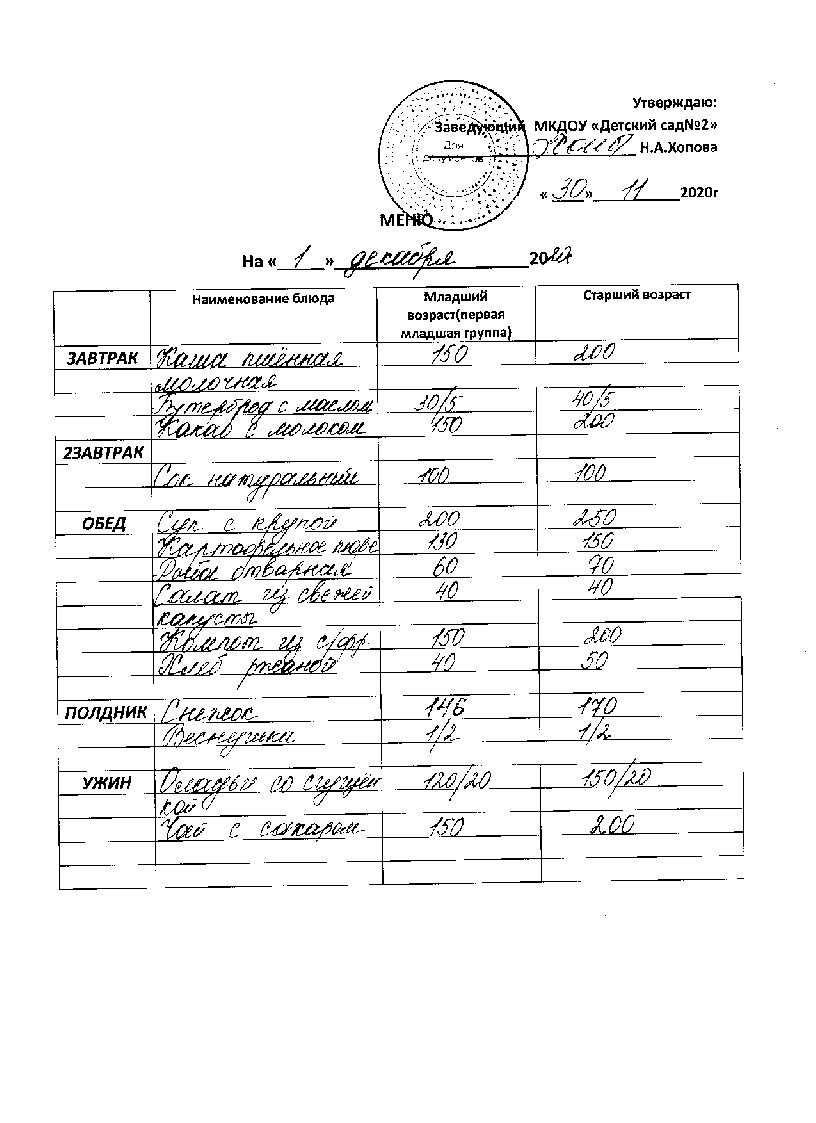 Утверждаю:
Заведующий МКДОУ «Детский сад№2»
Для документов
Н.А.Хопова
« 30 » 11 2020г
МЕНЮ
На « 1 » декабря 20
Наименование блюда Младший возраст(первая младшая группа) Старший возраст
ЗАВТРАК Каша пшённая 150 200
молочная
Бутерброд с маслом 30/5 40/5
Какао с молоком 150 200
2ЗАВТРАК
Сок натуральный 100 100
ОБЕД Суп с крупой 200 250
Картофельное пюре 130 150
Рыба отварная 60 70
Салат из свежей 40 40
капусты
Компот из с/фр 150 200
Хлеб ржаной 40 50
ПОЛДНИК Снежок 146 170
Веснушка 1/2 1/2
УЖИН Оладьи со сгущён 120/20 150/20
кой
Чай с сахаром 150 200